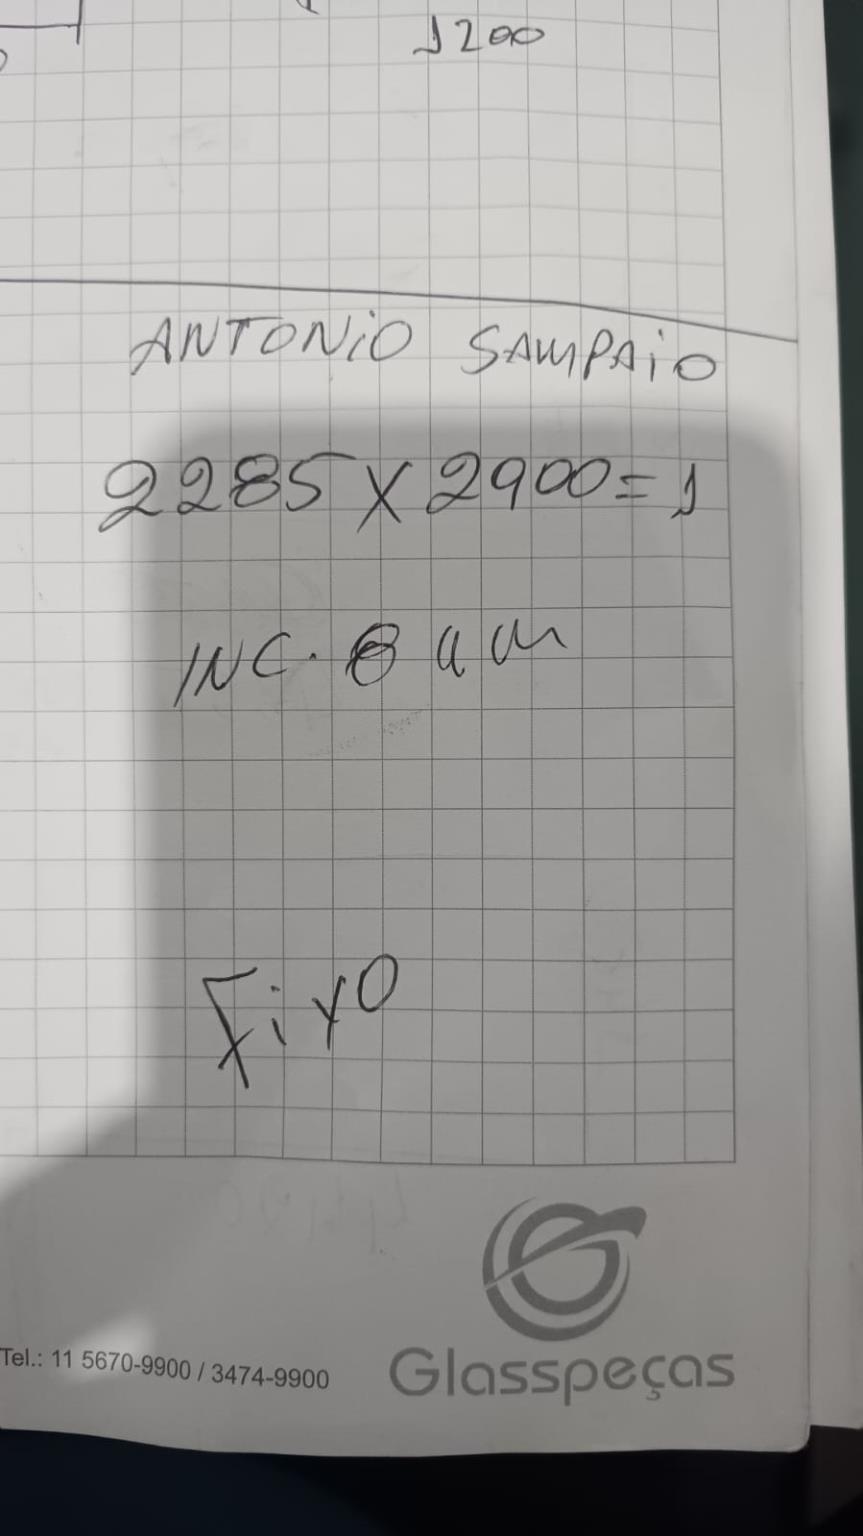 1200
ANTONIO SAMPAIO
2285 X 2900 = 1
INC. 8 mm
Fixo
Tel.: 11 5670-9900 / 3474-9900
Glasspeças